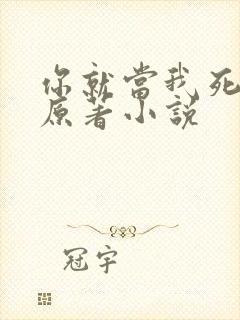 你就當我死
原著小說
冠宇